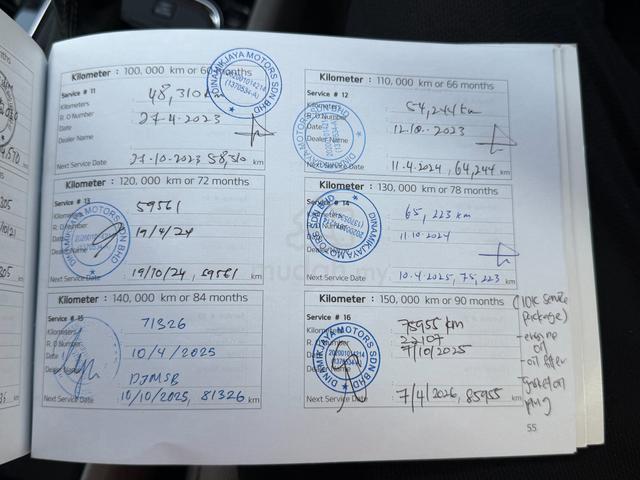 Kilometer : 100, 000 km or 60 months
Service # 11
Kilometers 48,310 km
R. O Number
Date 27.4.2023
Dealer Name
Next Service Date 27.10.2023 58,310 km
DINAMIKJAYA MOTORS SDN BHD
Kilometer : 110, 000 km or 66 months
Service # 12
Kilometers 54,244 km
R. O Number
Date 2023
Dealer Name
Next Service Date 11.4.2024, 64,244 km
DINAMIKJAYA MOTORS SDN BHD
Kilometer : 120, 000 km or 72 months
Service # 13
Kilometers 59561
R. O Number
Date 19/4/24
Dealer Name
Next Service Date 19/10/24, 69561 km
DINAMIKJAYA MOTORS SDN BHD
Kilometer : 130, 000 km or 78 months
Service # 14
Kilometers 65, 223 km
R. O Number
Date 11.10.2024
Dealer Name
Next Service Date 10.4.2025, 75, 223 km
DINAMIKJAYA MOTORS SDN BHD
Kilometer : 140, 000 km or 84 months
Service # 15
Kilometers 71326
R. O Number
Date 10/4/2025
Dealer Name DJMSB
Next Service Date 10/10/2025, 81326 km
Kilometer : 150, 000 km or 90 months
Service # 16
Kilometers 75955 km
R. O Number 27107
Date 7/10/2025
Dealer Name
Next Service Date 7/4/2026, 85955 km
DINAMIKJAYA MOTORS SDN BHD
202001014214
(10K service
package)
- engine
oil
- oil filter
plug
55